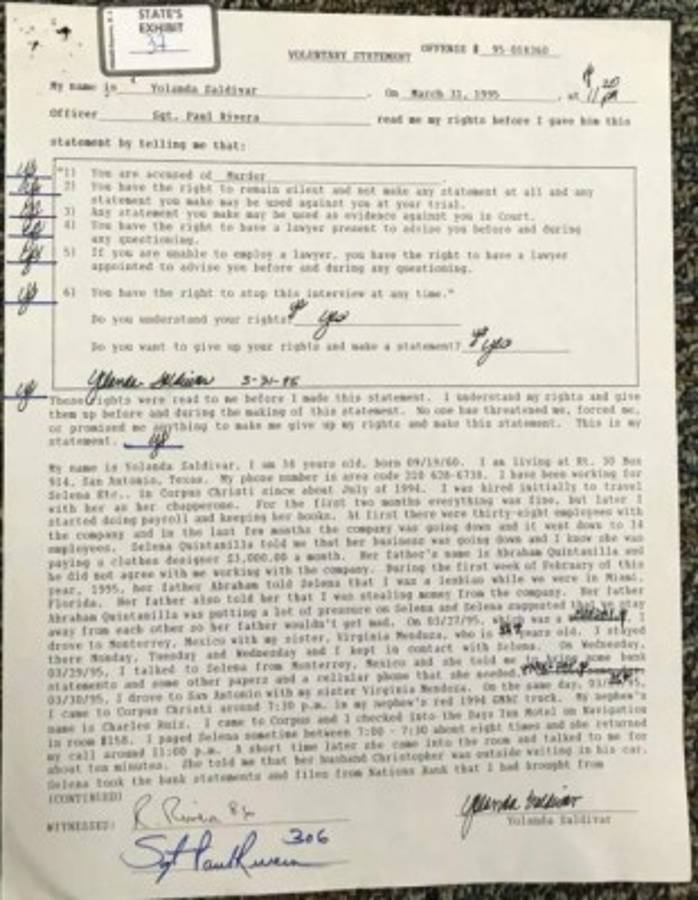 STATE'S
EXHIBIT
37
VOLUNTARY STATEMENT OFFENSE # 95-018360
My name is Yolanda Saldivar. On March 31, 1995, at 11:20 pm
Officer Sgt. Paul Rivera read me my rights before I gave him this
statement by telling me that:
"1) You are accused of Murder
2) You have the right to remain silent and not make any statement at all and any
statement you make may be used against you at your trial.
3) Any statement you make may be used as evidence against you in Court.
4) You have the right to have a lawyer present to advise you before and during
any questioning.
5) If you are unable to employ a lawyer, you have the right to have a lawyer
appointed to advise you before and during any questioning.
6) You have the right to stop this interview at any time."
Do you understand your rights? ys yes
Do you want to give up your rights and make a statement? ys yes
Yolanda Saldivar 3-31-95
These rights were read to me before I made this statement. I understand my rights and give
them up before and during the making of this statement. No one has threatened me, forced me,
or promised me anything to make me give up my rights and make this statement. This is my
statement. ys
My name is Yolanda Saldivar, I am 34 years old, born 09/19/60. I am living at Rt. 30 Box
914, San Antonio, Texas. My phone number is area code 210 628-6738. I have been working for
Selena Etc., in Corpus Christi since about July of 1994. I was hired initially to travel
with her as her chapperone. For the first two months everything was fine, but later I
started doing payroll and keeping her books. At first there were thirty-eight employees with
the company and in the last few months the company was going down and it went down to 14
employees. Selena Quintanilla told me that her business was going down and I know she was
paying a clothes designer $3,000.00 a month. Her father's name is Abraham Quintanilla and
he did not agree with me working with the company. During the first week of February of this
year, 1995, her father Abraham told Selena that I was a lesbian while we were in Miami,
Florida. Her father also told her that I was stealing money from the company. Her father
Abraham Quintanilla was putting a lot of pressure on Selena and Selena suggested that we stay
away from each other so her father wouldn't get mad. On 03/27/95, which was a I
drove to Monterrey, Mexico with my sister, Virginia Mendoza, who is years old. I stayed
there Monday, Tuesday and Wednesday and I kept in contact with Selena. On Wednesday,
03/29/95, I talked to Selena from Monterrey, Mexico and she told me to bring some bank
statements and some other papers and a cellular phone that she needed.
03/30/95, I drove to San Antonio with my sister Virginia Mendoza. On the same day,
I came to Corpus Christi around 7:30 p.m. in my nephew's red 1994 GMAC truck. My nephew's
name is Charles Ruiz. I came to Corpus and I checked into the Days Inn Motel on Navigation
in room #158. I paged Selena sometime between 7:00 - 7:30 about eight times and she returned
my call around 11:00 p.m. A short time later she came into the room and talked to me for
about ten minutes. She told me that her husband Christopher was outside waiting in his car.
Selena took the bank statements and files from Nations Bank that I had brought from
(CONTINUED)
WITNESSED: R Rivera
Yolanda Saldivar
Yolanda Saldivar
Sgt Paul Rivera 306